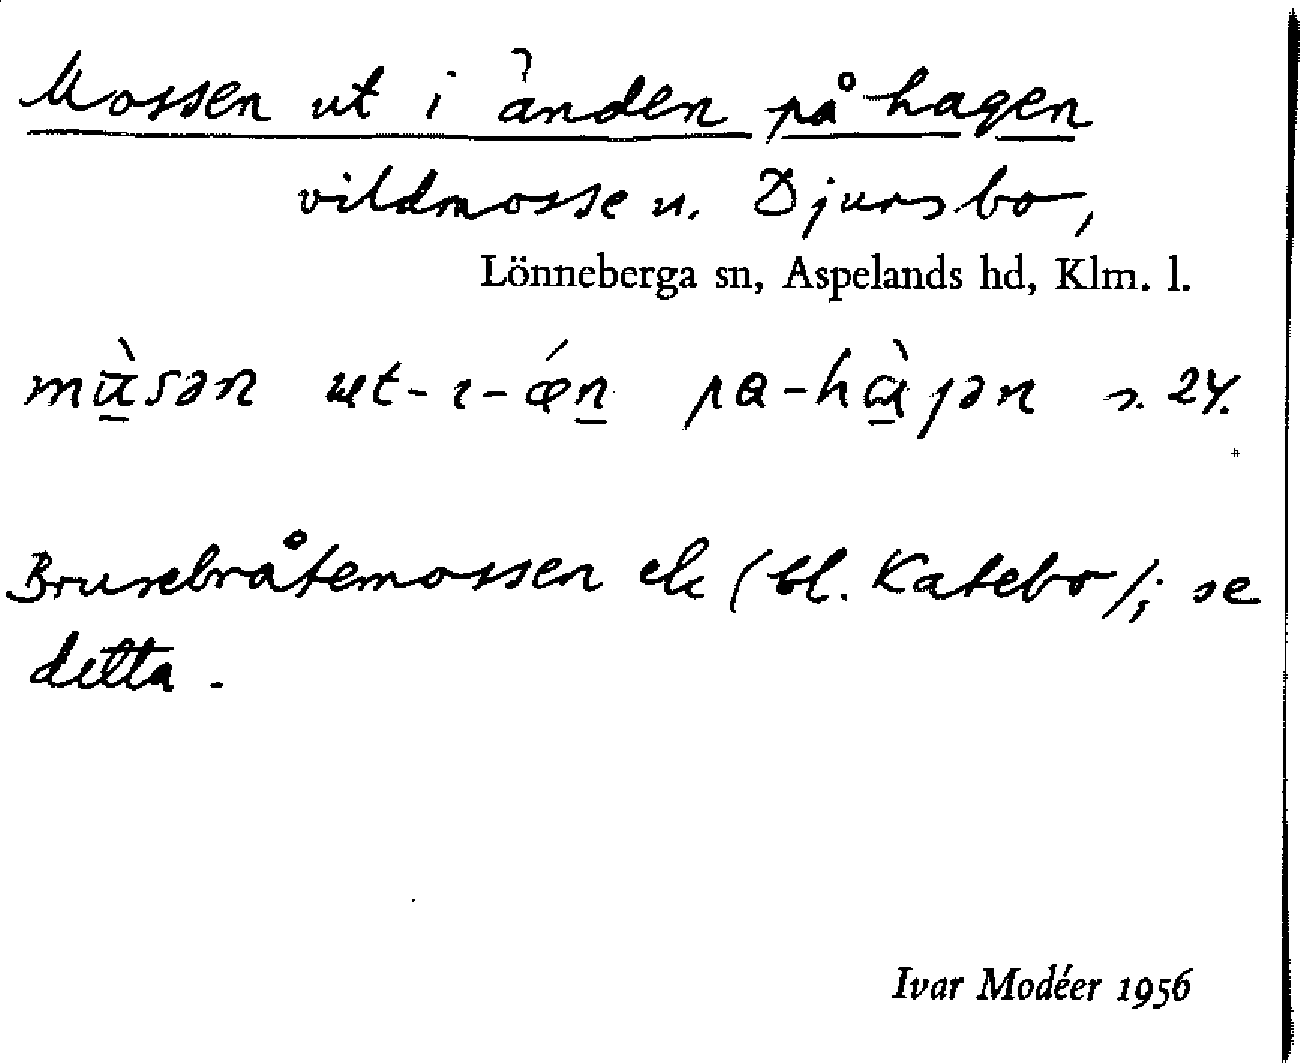 Mossen ut i änden på hagen
vildmosse u. Djursbo,
Lönneberga sn, Aspelands hd, Klm. l.
mùsən ut-ı-ǽn pa-hàgən s. 24.
Brusebråtemossen ek (bl. Katebo/; se
detta.
Ivar Modéer 1956